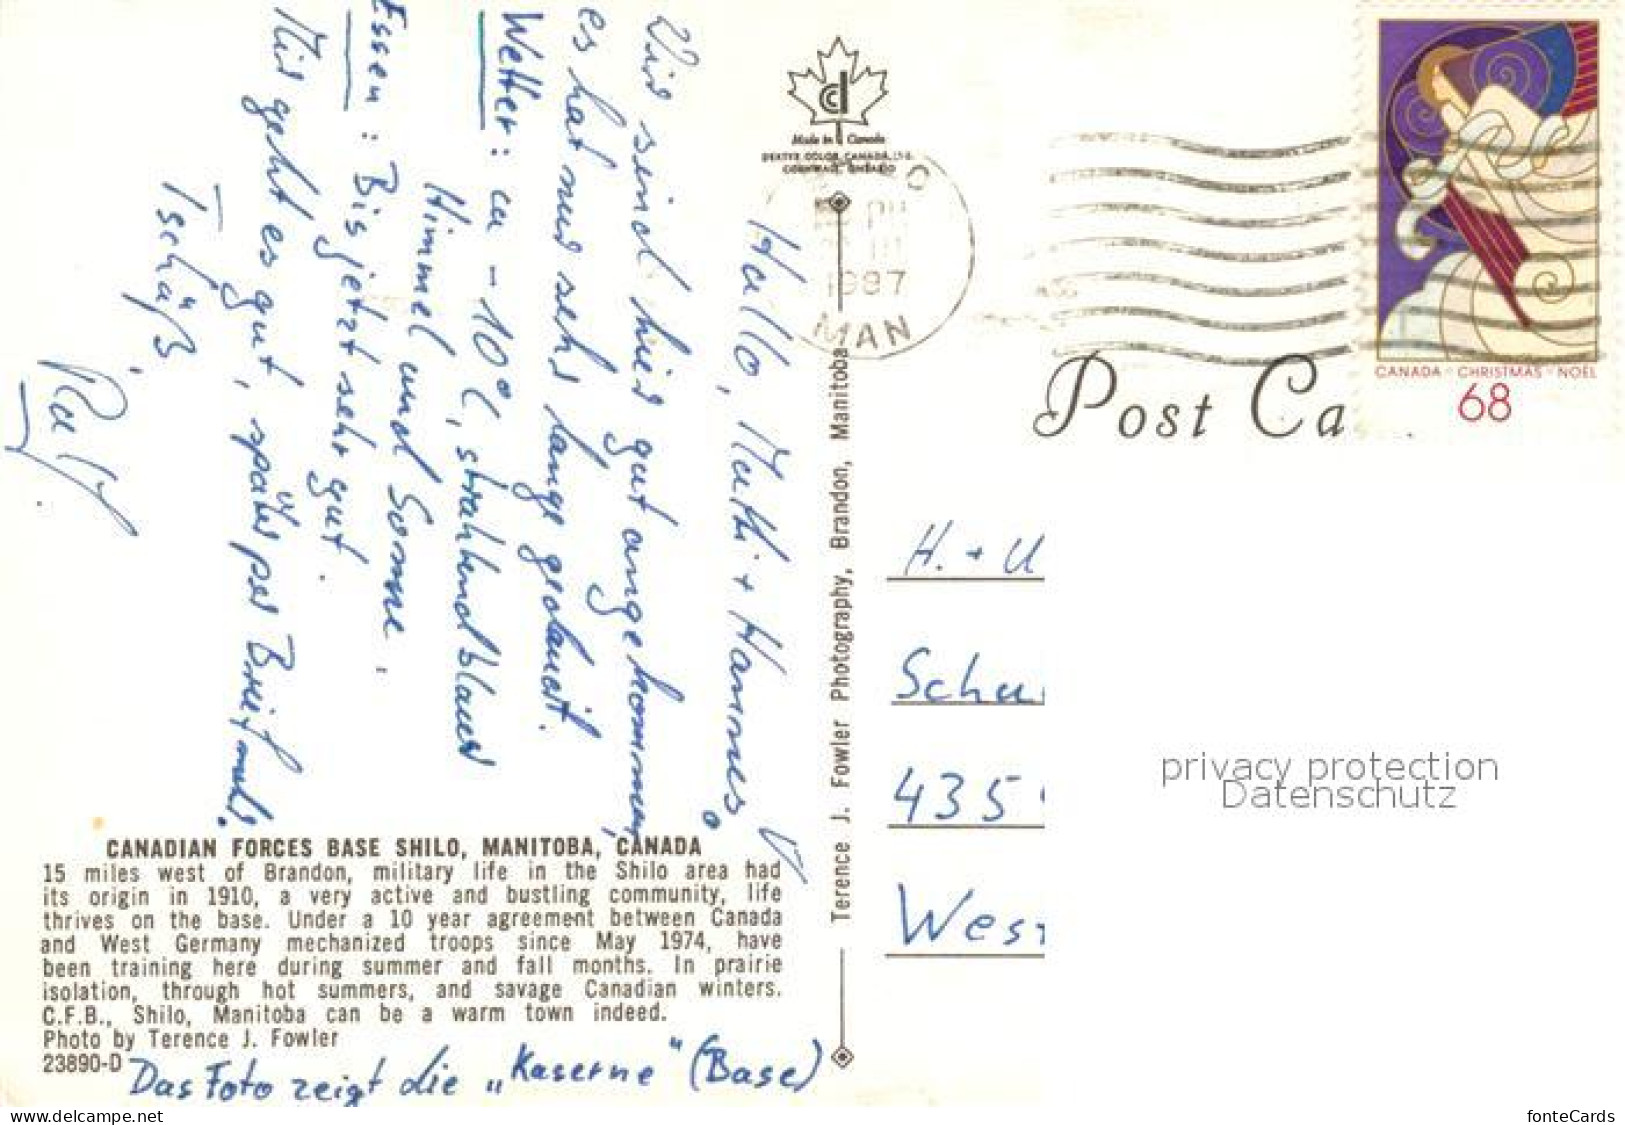 Hallo, Mutti + Hannes
Wir sind hier gut angekommen,
es hat nur sehr lange gedauert.
Wetter: ca -10°C, strahlendblauer
Himmel und Sonne.
Essen: Bis jetzt sehr gut.
Mir geht es gut, später per Brief mehr.
Tschüß,
Ralf.
Made in Canada
DEXTER COLOR CANADA LTD.
CORNWALL, ONTARIO
1987
MAN
CANADA · CHRISTMAS · NOËL
68
Post Ca
Terence J. Fowler Photography, Brandon, Manitoba
H. + U
Schu
435
West
privacy protection
Datenschutz
CANADIAN FORCES BASE SHILO, MANITOBA, CANADA
15 miles west of Brandon, military life in the Shilo area had
its origin in 1910, a very active and bustling community, life
thrives on the base. Under a 10 year agreement between Canada
and West Germany mechanized troops since May 1974, have
been training here during summer and fall months. In prairie
isolation, through hot summers, and savage Canadian winters.
C.F.B., Shilo, Manitoba can be a warm town indeed.
Photo by Terence J. Fowler
23890-D
Das Foto zeigt die „Kaserne" (Base)
www.delcampe.net
fonteCards